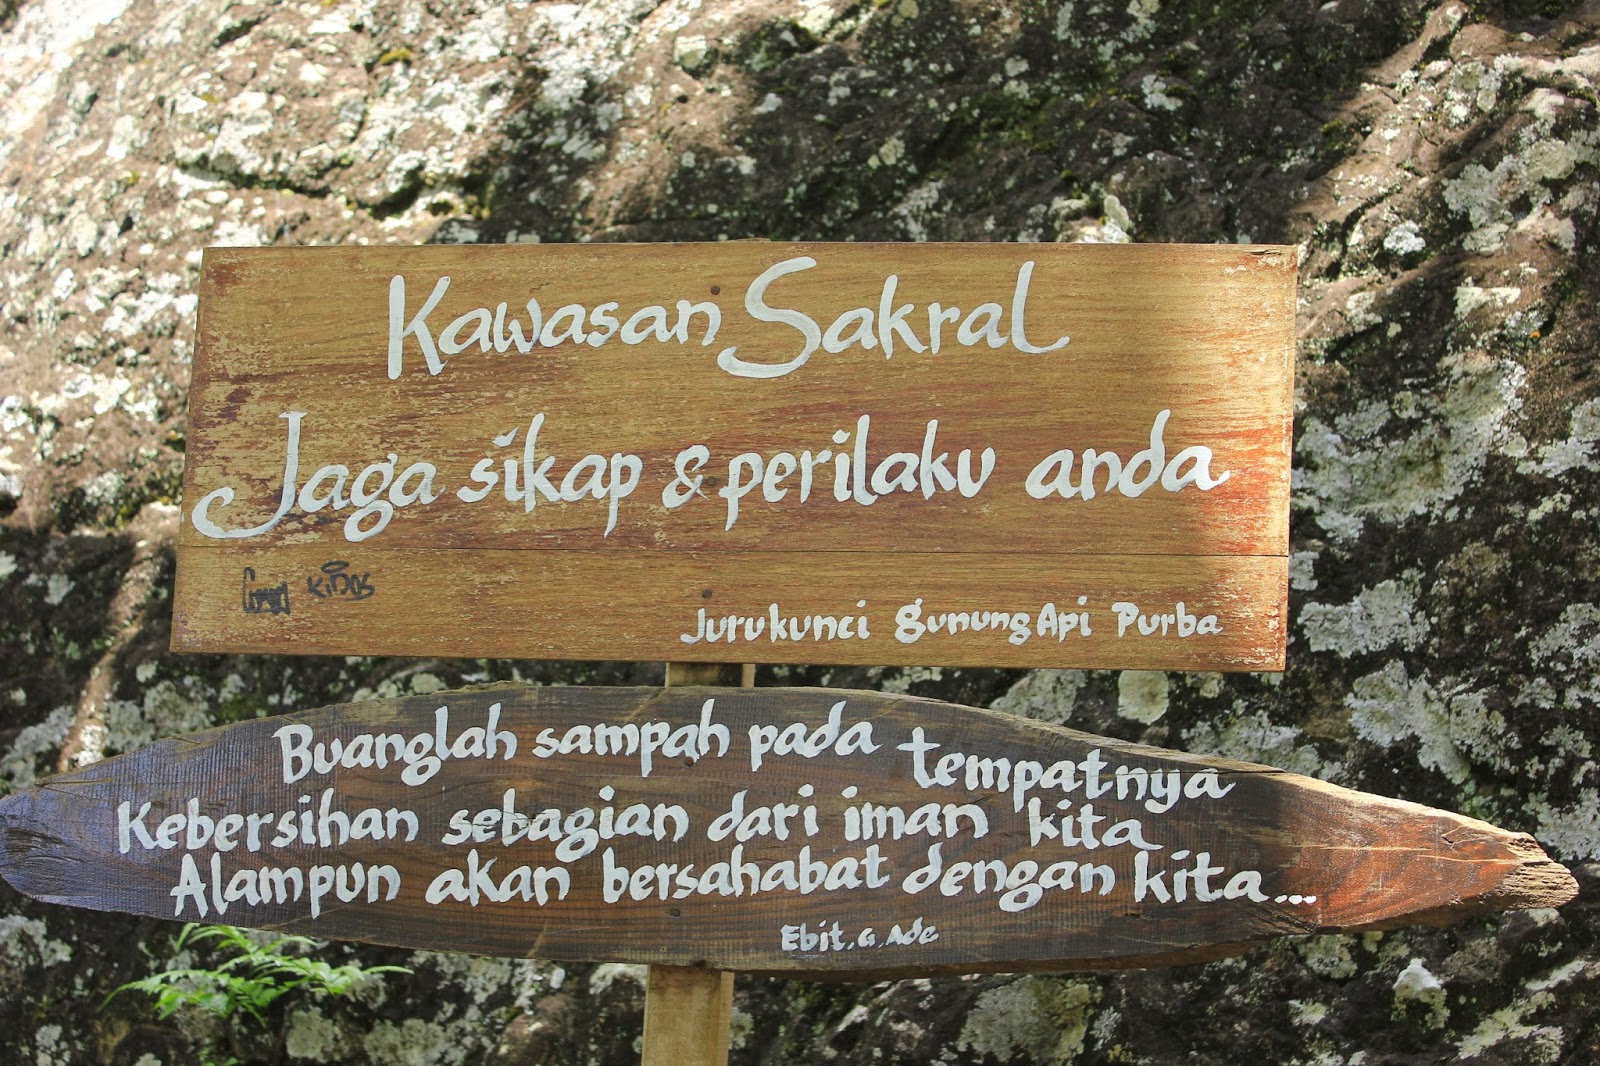 Kawasan Sakral
Jaga sikap & perilaku anda
Kinos
Jurukunci Gunung Api Purba
Buanglah sampah pada tempatnya
Kebersihan sebagian dari iman kita
Alampun akan bersahabat dengan kita...
Ebit.G.Ade